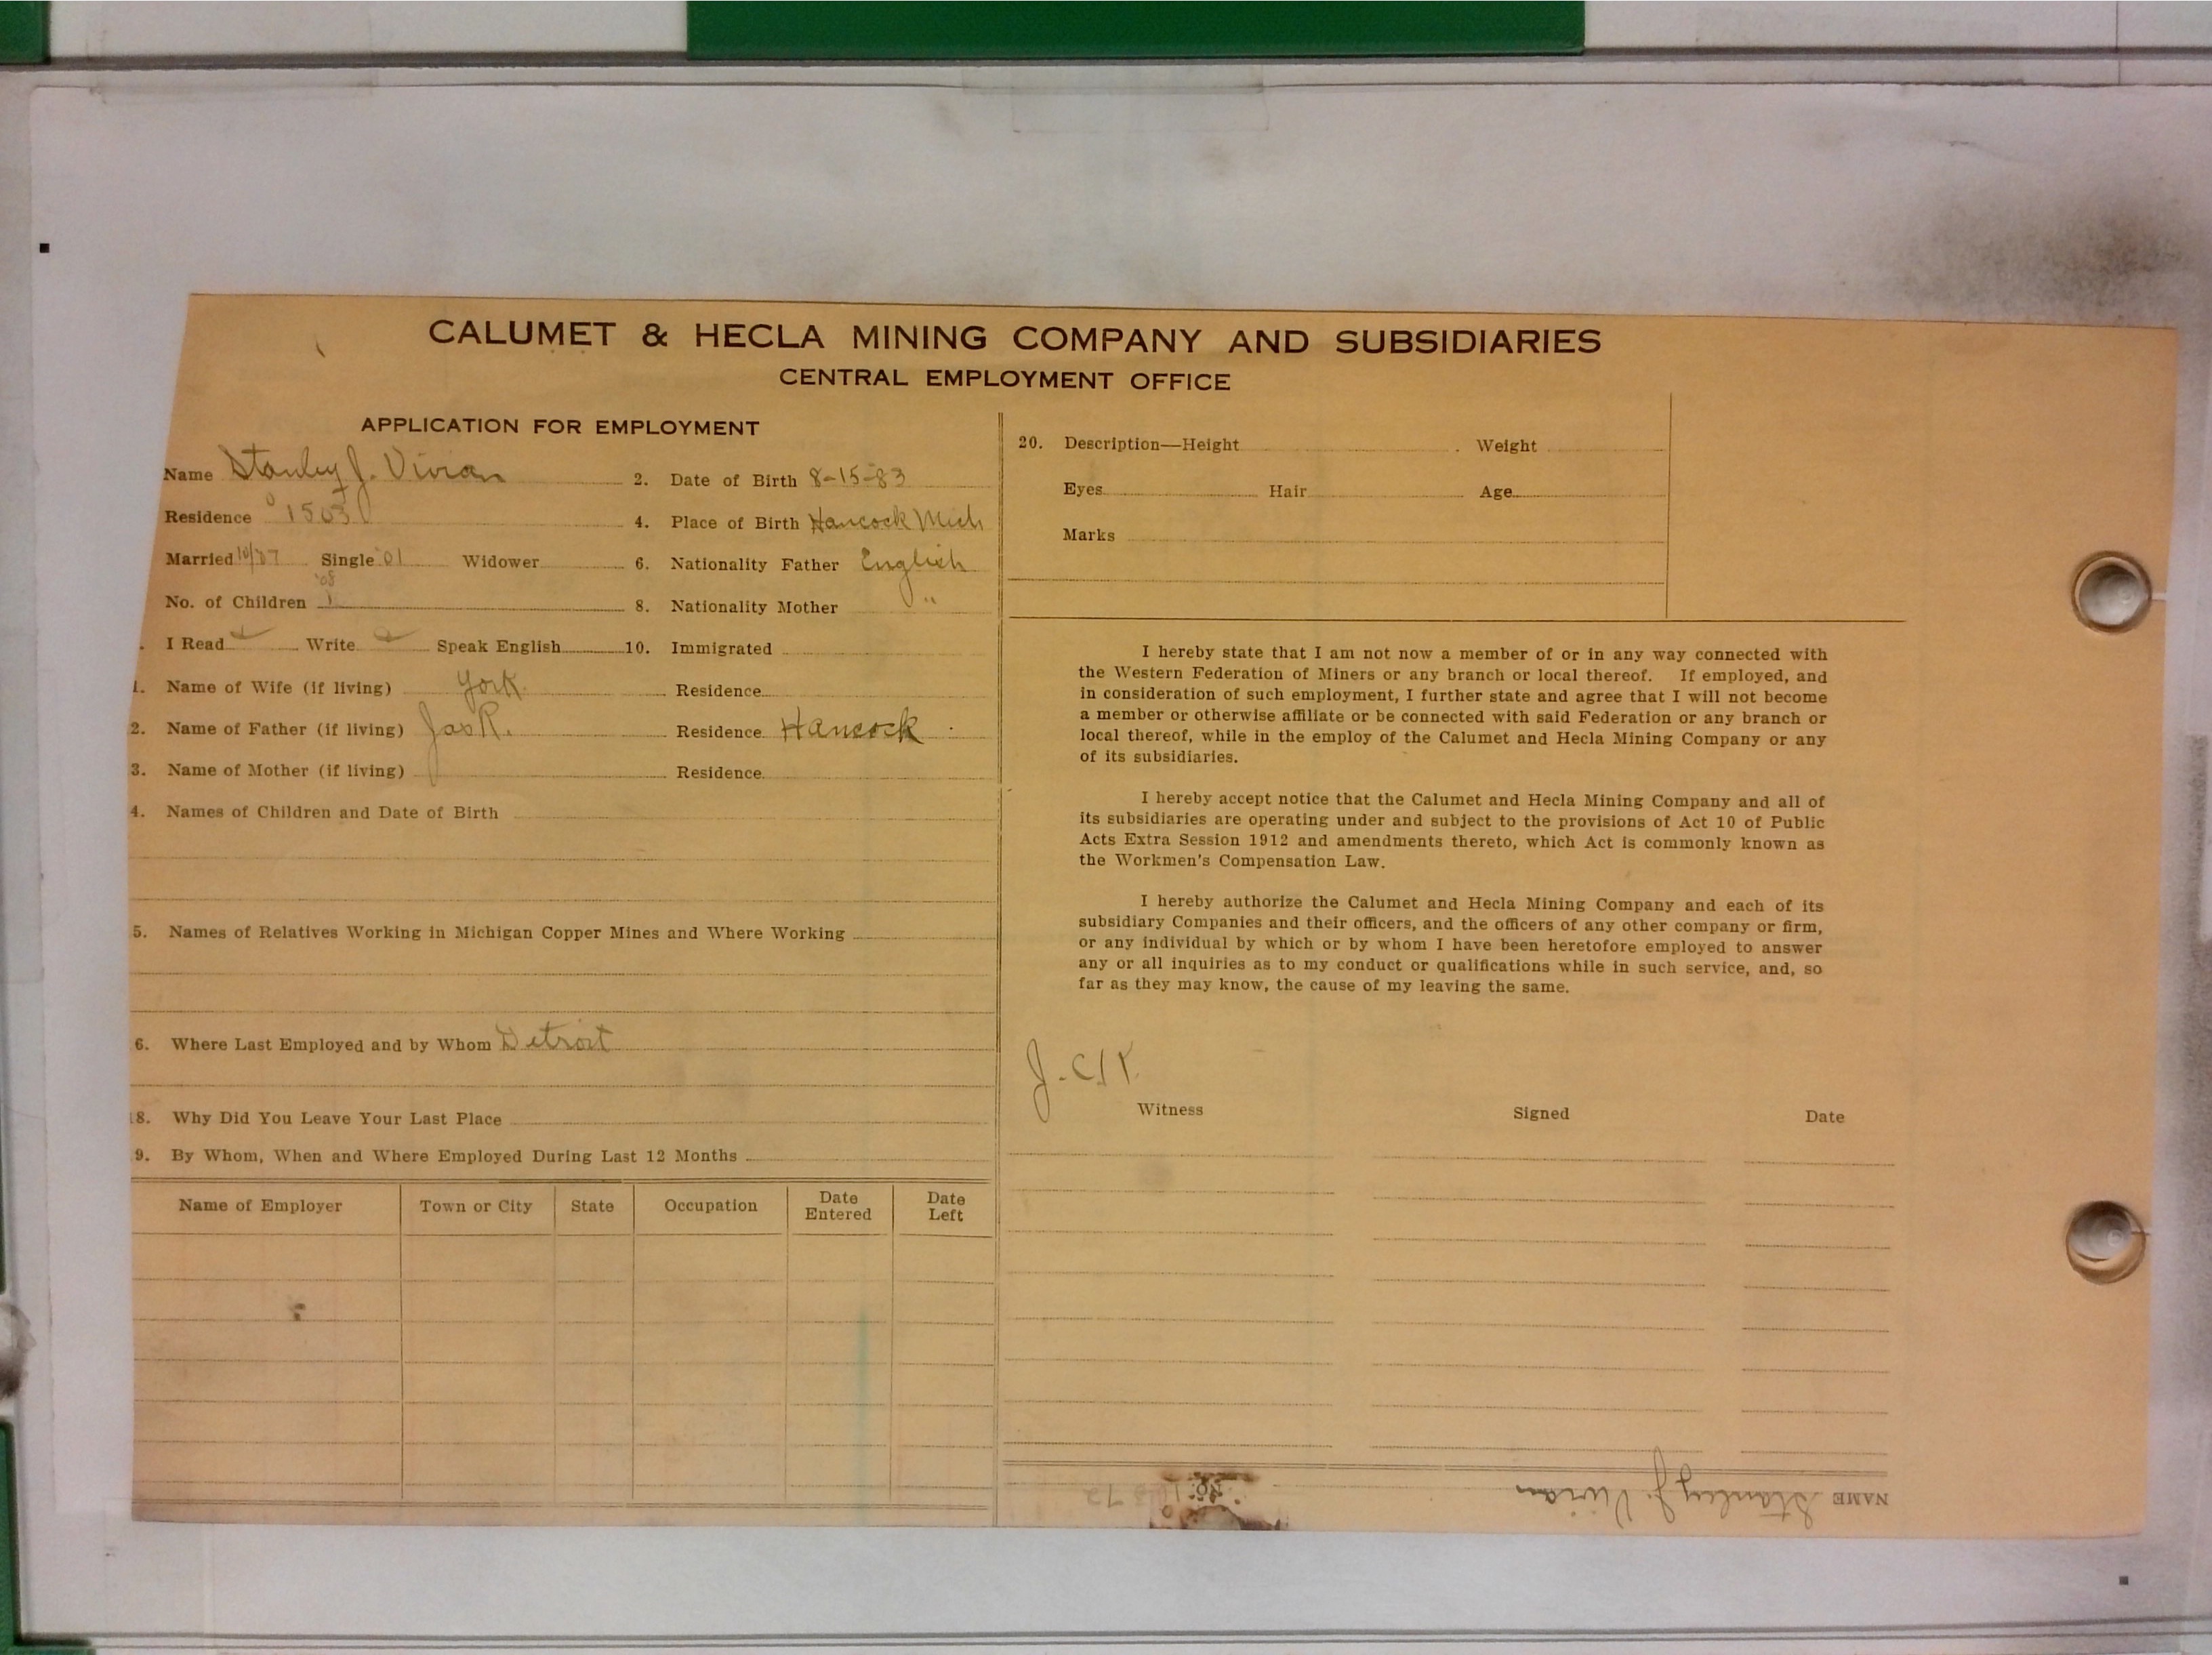 CALUMET & HECLA MINING COMPANY AND SUBSIDIARIES
CENTRAL EMPLOYMENT OFFICE
APPLICATION FOR EMPLOYMENT
Name Stanley J. Vivian 2. Date of Birth 8-15-83
Residence 1503 4. Place of Birth Hancock Mich
Married 10/07 Single 01 Widower 6. Nationality Father English
'08
No. of Children 1 8. Nationality Mother "
. I Read Write Speak English 10. Immigrated
1. Name of Wife (if living) York Residence
2. Name of Father (if living) Jas R. Residence Hancock
3. Name of Mother (if living) Residence
4. Names of Children and Date of Birth
5. Names of Relatives Working in Michigan Copper Mines and Where Working
6. Where Last Employed and by Whom Detroit
18. Why Did You Leave Your Last Place
9. By Whom, When and Where Employed During Last 12 Months
Name of Employer Town or City State Occupation Date Entered Date Left
20. Description—Height Weight
Eyes Hair Age
Marks
I hereby state that I am not now a member of or in any way connected with
the Western Federation of Miners or any branch or local thereof. If employed, and
in consideration of such employment, I further state and agree that I will not become
a member or otherwise affiliate or be connected with said Federation or any branch or
local thereof, while in the employ of the Calumet and Hecla Mining Company or any
of its subsidiaries.
I hereby accept notice that the Calumet and Hecla Mining Company and all of
its subsidiaries are operating under and subject to the provisions of Act 10 of Public
Acts Extra Session 1912 and amendments thereto, which Act is commonly known as
the Workmen's Compensation Law.
I hereby authorize the Calumet and Hecla Mining Company and each of its
subsidiary Companies and their officers, and the officers of any other company or firm,
or any individual by which or by whom I have been heretofore employed to answer
any or all inquiries as to my conduct or qualifications while in such service, and, so
far as they may know, the cause of my leaving the same.
Witness Signed Date
NAME Stanley J. Vivian No.